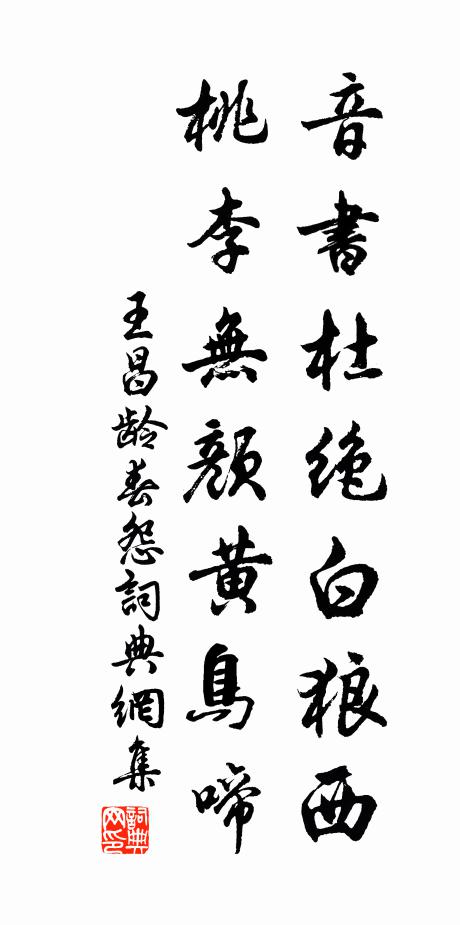 音書杜絶白狼西
桃李無顏黃鳥啼
王昌龄春怨詞典網集
詞典网印